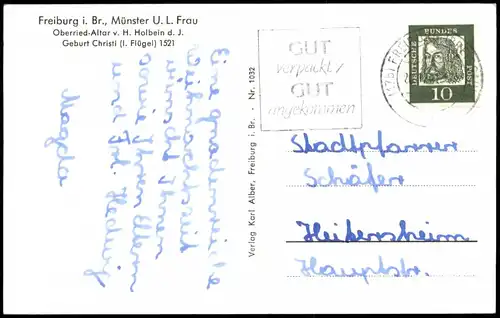 Freiburg i. Br., Münster U. L. Frau
Oberried-Altar v. H. Holbein d. J.
Geburt Christi (l. Flügel) 1521
Eine gnadenreiche
Weihnachtszeit
wünscht Ihnen
sowie Ihren Eltern
und Frl. Hedwig
Magda
Verlag Karl Alber, Freiburg i. Br. - Nr. 1032
GUT
verpackt/
GUT
angekommen
DEUTSCHE BUNDESPOST
10
Stadtpfarrer
Schäfer
Heitersheim
Hauptstr.